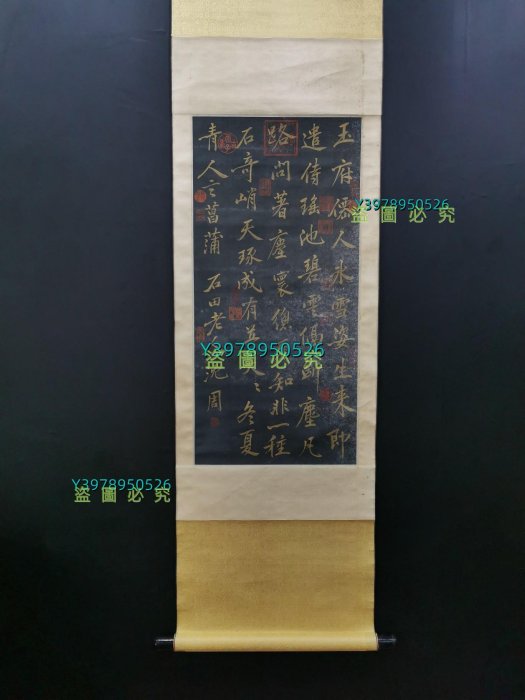 玉府僊人冰雪姿生來即
遣侍瑤池碧雲偶斷塵凡
路問著塵寰知非一種
石奇峭天琢成有冬夏
青人言菖蒲 石田老沈周
Y3978950526
盜圖必究
Y3978950526
盜圖必究
Y3978950526
盜圖必究